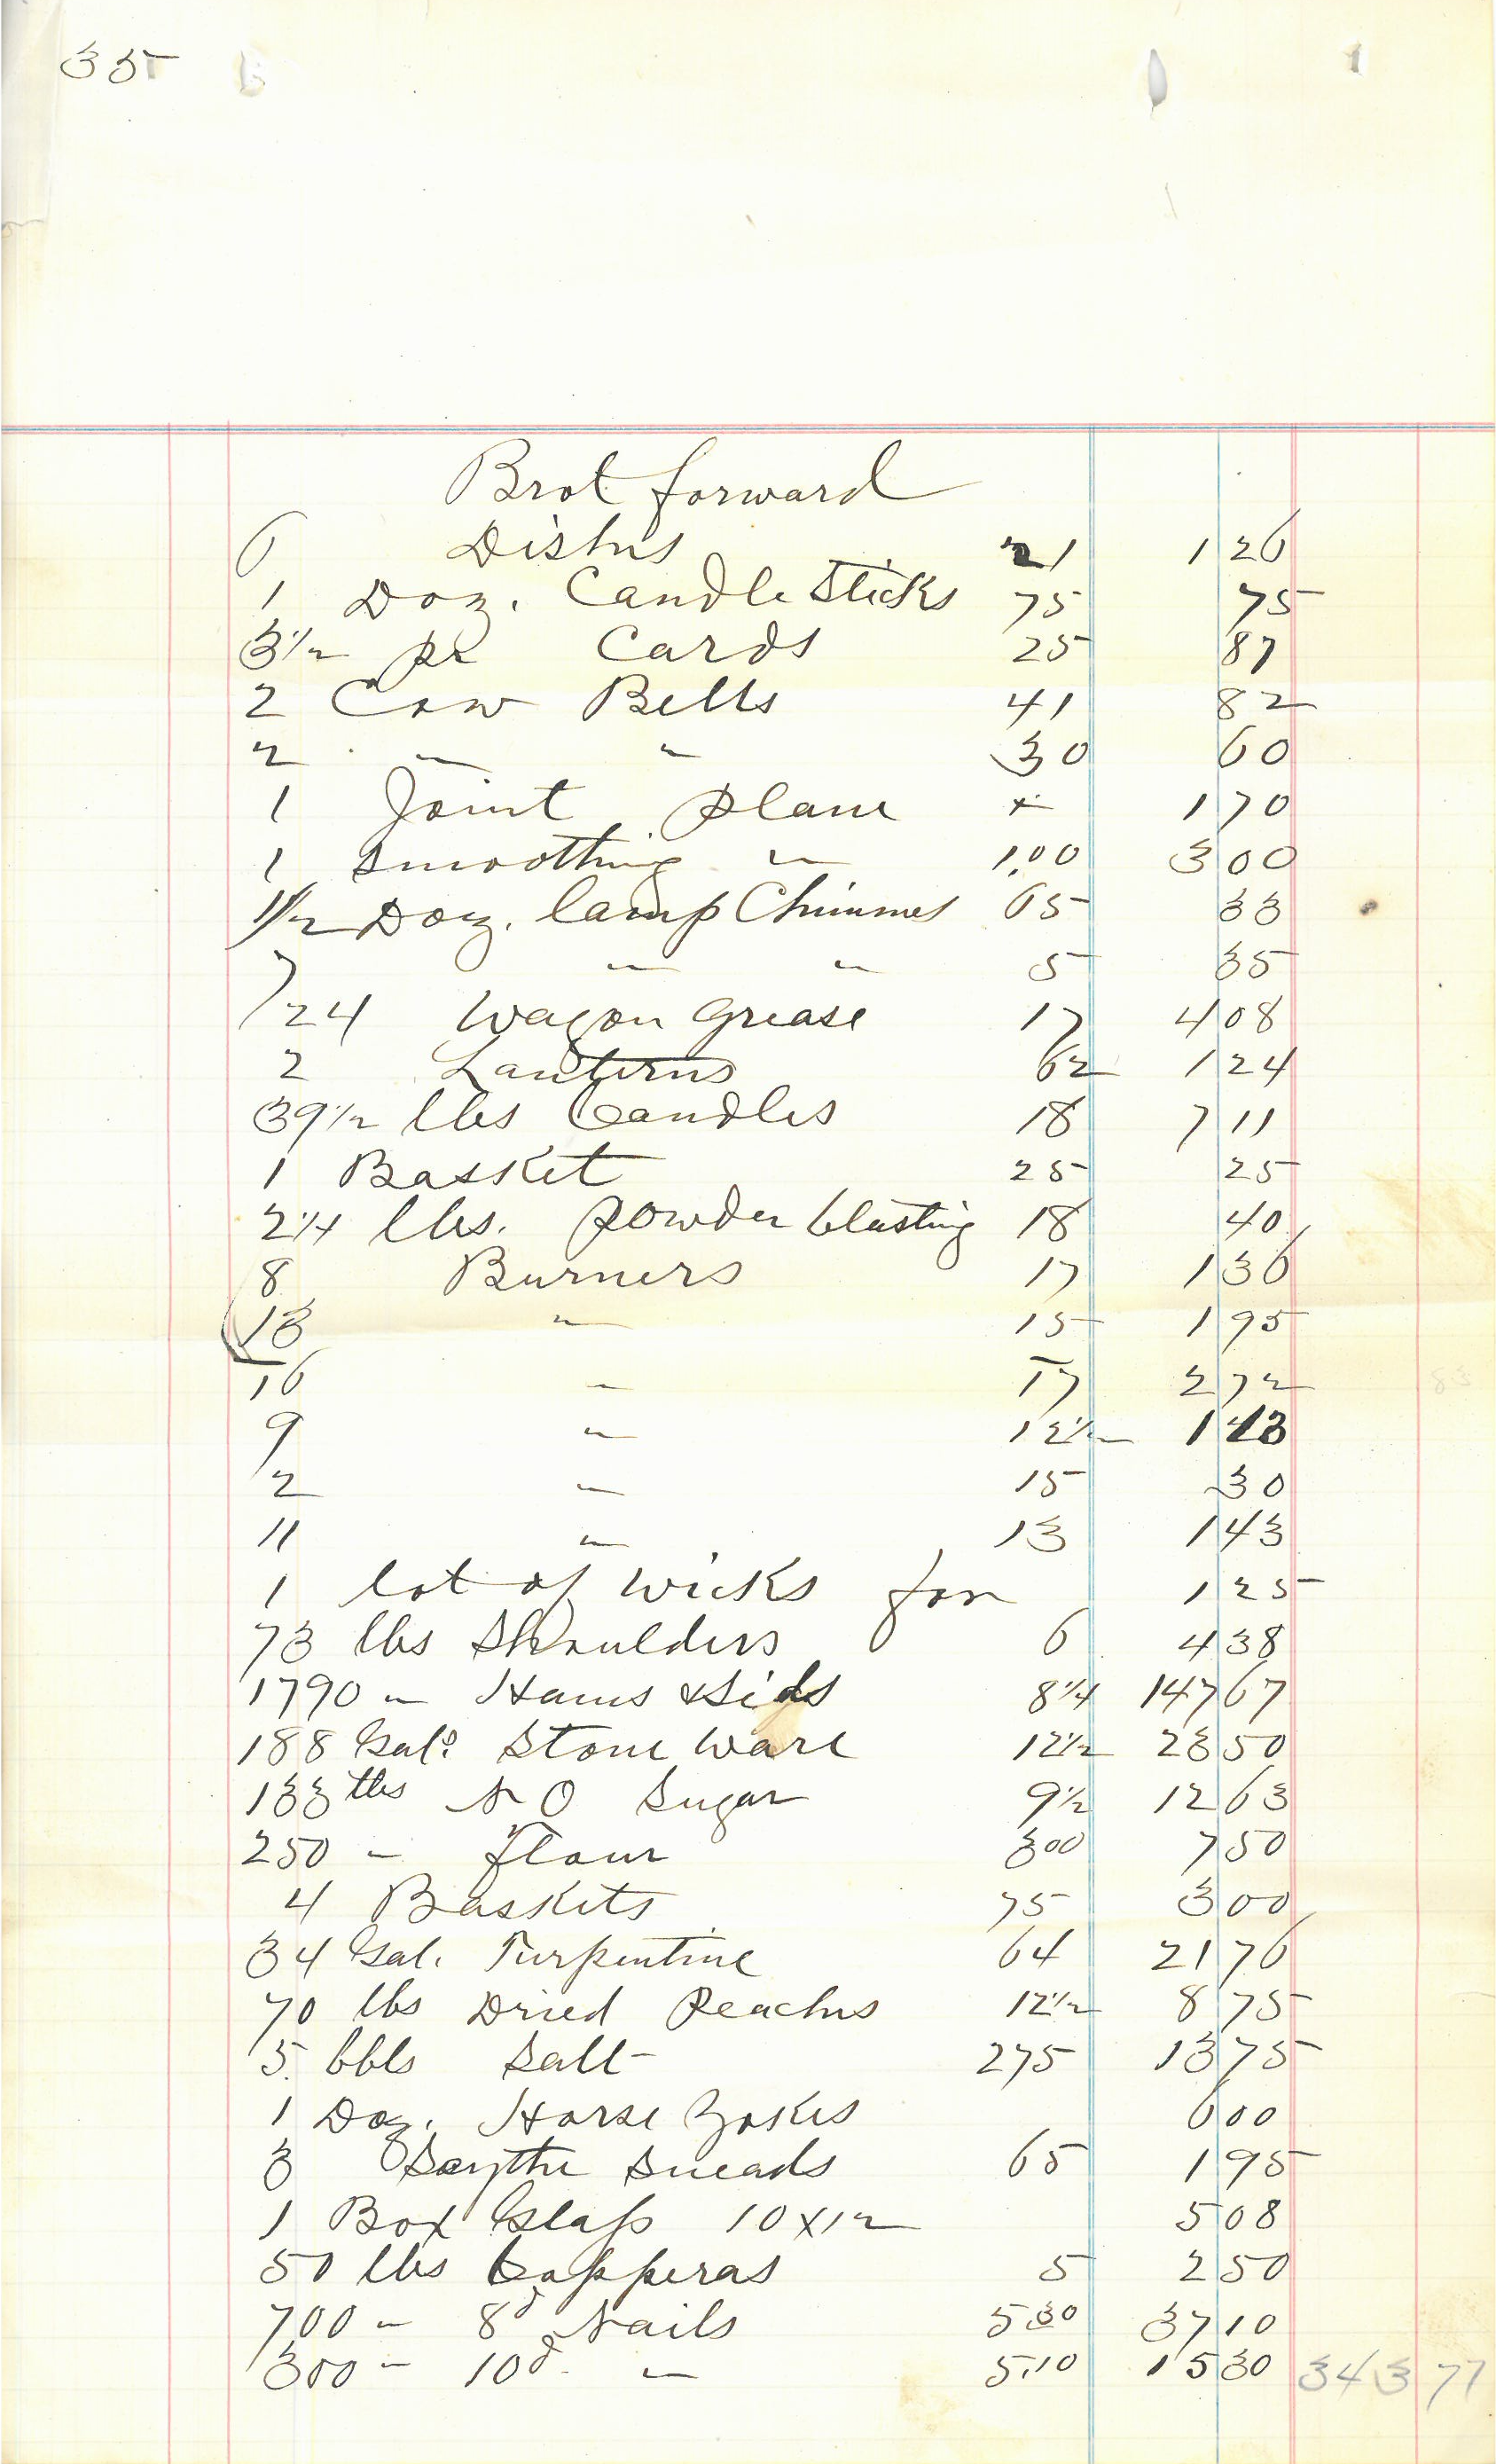 335
Brot forward
6 Dishes 21 1 26
1 Doz. Candle Sticks 75 75
3 1/2 pr Cards 25 87
2 Cow Bells 41 82
2 " " 30 60
1 Joint plane + 1 70
1 Smoothing " 1.00 3 00
1/2 Doz. lamp Chimnes 65 33
7 " " 5 35
24 Wagon Grease 17 4 08
2 Lanterns 62 1 24
39 1/2 lbs Candles 18 7 11
1 Basket 25 25
2 1/4 lbs. powder blasting 18 40
8 Burners 17 1 36
13 " 15 1 95
16 " 17 2 72
9 " 12 1/2 1 13
2 " 15 30
11 " 13 1 43
1 lot of wicks for 1 25
73 lbs Shoulders 6 4 38
1790 " Hams & Sids 8 1/4 147 67
188 Gals Stone Ware 12 1/2 23 50
133 lbs N O Sugar 9 1/2 12 63
250 " flour 300 7 50
4 Baskets 75 3 00
34 Gal. Turpentine 64 21 76
70 lbs Dried Peaches 12 1/2 8 75
5 bbls Salt 275 13 75
1 Doz. Horse Yokes 6 00
3 Scythe Sneads 65 1 95
1 Box Glass 10 x 12 5 08
50 lbs Copperas 5 2 50
700 " 8d Nails 5 30 37 10
300 " 10d " 5.10 15 30 343 77